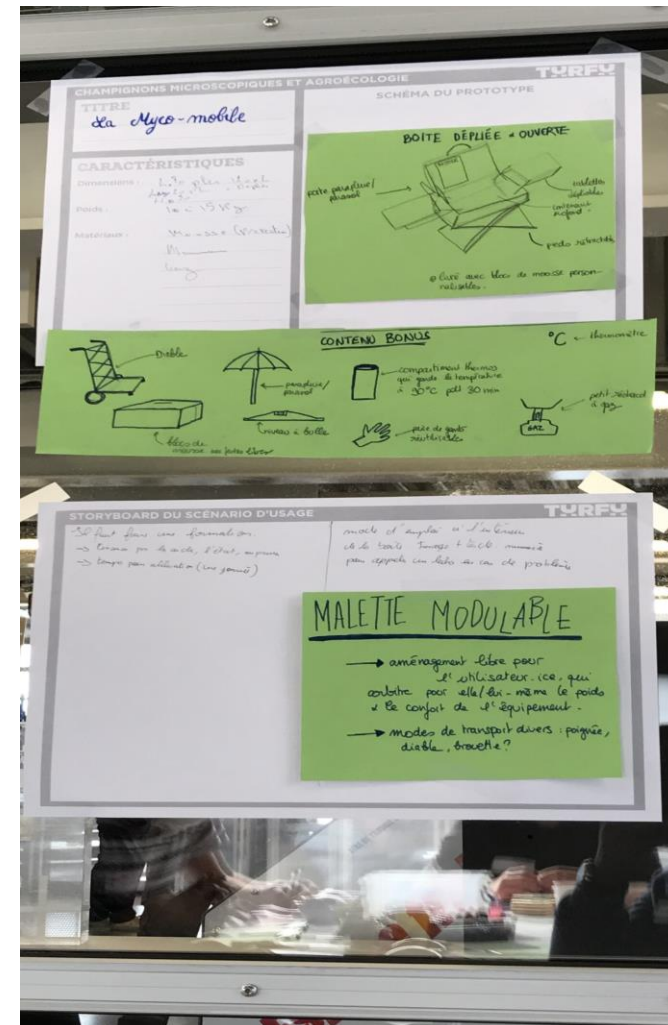 CHAMPIGNONS MICROSCOPIQUES ET AGROÉCOLOGIE
TURFU
TITRE
La Myco-mobile
CARACTÉRISTIQUES
Dimensions :
Poids : 10 à 15 kg
Matériaux : Mousse
SCHÉMA DU PROTOTYPE
BOITE DÉPLIÉE & OUVERTE
porte parapluie/
parasol
tablettes
dépliables
contenant
profond
pieds rétractables
livré avec blocs de mousse person-
nalisables.
CONTENU BONUS
Diable
blocs de
mousse
parapluie/
parasol
niveau à bulle
compartiment thermos
qui garde la température
à 90°C pdt 30 min
paire de gants
réutilisables
°C thermomètre
petit réchaud
à gaz
GAZ
STORYBOARD DU SCÉNARIO D'USAGE
TURFU
Il faut faire une formation
mode d'emploi à l'intérieur
de la boite
en cas de problème
MALETTE MODULABLE
→ aménagement libre pour
l'utilisateur.ice, qui
arbitre pour elle/lui-même le poids
& le confort de l'équipement.
→ modes de transport divers : poignée,
diable, brouette ?